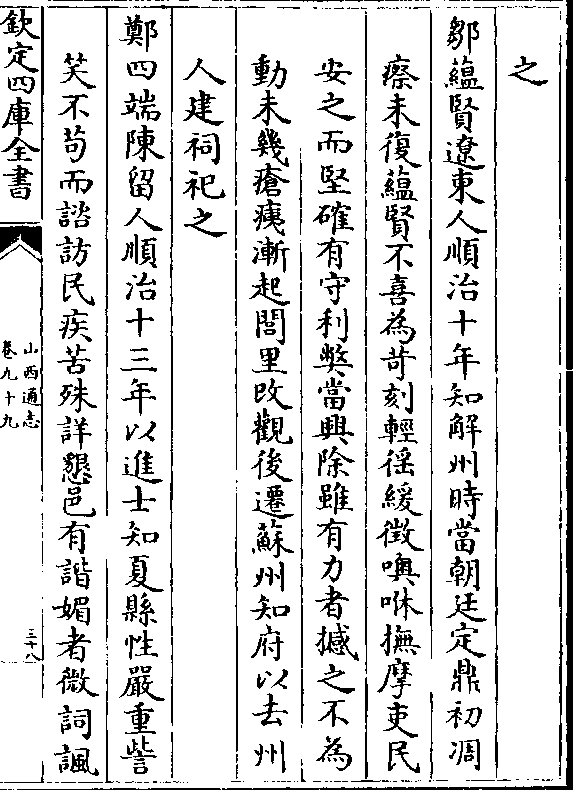 之
鄒蘊賢遼東人順治十年知解州時當朝廷定鼎初凋
瘵未復蘊賢不喜為苛刻輕徭緩徴噢咻撫摩吏民
安之而堅確有守利弊當興除雖有力者撼之不為
動未幾瘡痍漸起閭里改觀後遷蘇州知府以去州
人建祠祀之
鄭四端陳留人順治十三年以進士知夏縣性嚴重訾
笑不苟而諮訪民疾苦殊詳懇邑有諧媚者微詞諷
欽定四庫全書
山西通志
卷九十九
三十八